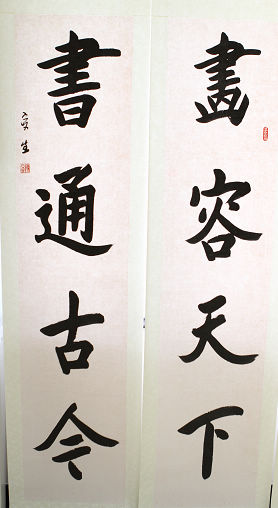 畫容天下
書通古今